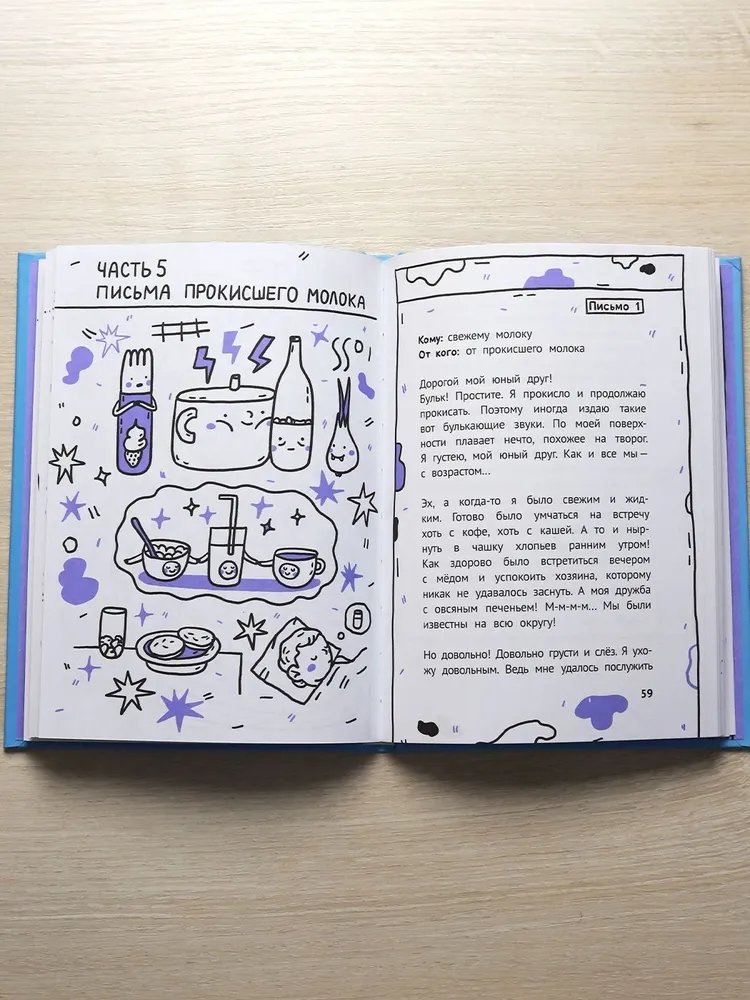 ЧАСТЬ 5
ПИСЬМА ПРОКИСШЕГО МОЛОКА
Письмо 1
Кому: свежему молоку
От кого: от прокисшего молока
Дорогой мой юный друг!
Бульк! Простите. Я прокисло и продолжаю
прокисать. Поэтому иногда издаю такие
вот булькающие звуки. По моей поверх-
ности плавает нечто, похожее на творог.
Я густею, мой юный друг. Как и все мы —
с возрастом...
Эх, а когда-то я было свежим и жид-
ким. Готово было умчаться на встречу
хоть с кофе, хоть с кашей. А то и ныр-
нуть в чашку хлопьев ранним утром!
Как здорово было встретиться вечером
с мёдом и успокоить хозяина, которому
никак не удавалось заснуть. А моя дружба
с овсяным печеньем! М-м-м-м... Мы были
известны на всю округу!
Но довольно! Довольно грусти и слёз. Я ухо-
жу довольным. Ведь мне удалось послужить
59